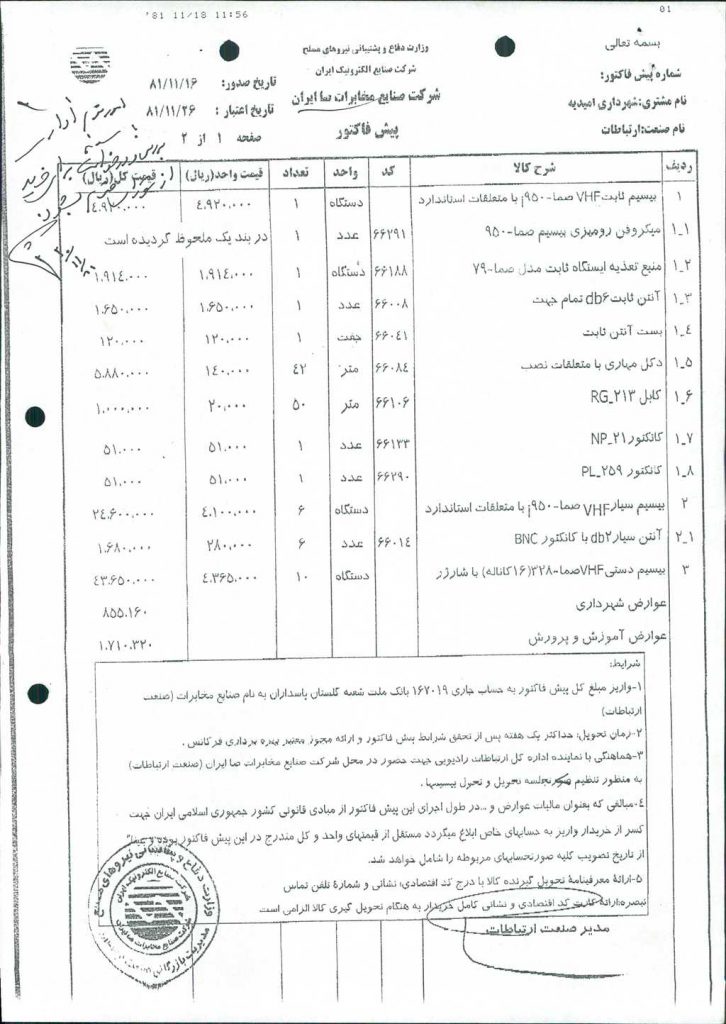 '81 11/18 11:56
01
بسمه تعالی
وزارت دفاع و پشتیبانی نیروهای مسلح
شرکت صنایع الکترونیک ایران
شرکت صنایع مخابرات صا ایران
پیش فاکتور
شماره پیش فاکتور:
نام مشتری:شهرداری امیدیه
نام صنعت:ارتباطات
تاریخ صدور: ۸۱/۱۱/۱۶
تاریخ اعتبار : ۸۱/۱۱/۲۶
صفحه ۱ از ۲
ردیف شرح کالا کد واحد تعداد قیمت واحد(ریال) قیمت کل(ریال)
۱ بیسیم ثابتVHF صما-۹۵۰j با متعلقات استاندارد دستگاه ۱ ۴.۹۲۰.۰۰۰ ۴.۹۲۰.۰۰۰
۱_۱ میکروفن رومیزی بیسیم صما-۹۵۰ ۶۶۲۹۱ عدد ۱ در بند یک ملحوظ گردیده است
۱_۲ منبع تغذیه ایستگاه ثابت مدل صما-۷۹۰ ۶۶۱۸۸ دستگاه ۱ ۱.۹۱۴.۰۰۰ ۱.۹۱۴.۰۰۰
۱_۳ آنتن ثابت۶db تمام جهت ۶۶۰۰۸ عدد ۱ ۱.۶۵۰.۰۰۰ ۱.۶۵۰.۰۰۰
۱_۴ بست آنتن ثابت ۶۶۰۴۱ جفت ۱ ۱۲۰.۰۰۰ ۱۲۰.۰۰۰
۱_۵ دکل مهاری با متعلقات نصب ۶۶۰۸۴ متر ۴۲ ۱۴۰.۰۰۰ ۵.۸۸۰.۰۰۰
۱_۶ کابل RG_۲۱۳ ۶۶۱۰۶ متر ۵۰ ۲۰.۰۰۰ ۱.۰۰۰.۰۰۰
۱_۷ کانکتور NP_۲۱ ۶۶۱۳۳ عدد ۱ ۵۱.۰۰۰ ۵۱.۰۰۰
۱_۸ کانکتور PL_۲۵۹ ۶۶۲۹۰ عدد ۱ ۵۱.۰۰۰ ۵۱.۰۰۰
۲ بیسیم سیارVHF صما-۹۵۰j با متعلقات استاندارد دستگاه ۶ ۴.۱۰۰.۰۰۰ ۲۴.۶۰۰.۰۰۰
۲_۱ آنتن سیار۲db با کانکتور BNC ۶۶۰۱۴ عدد ۶ ۲۸۰.۰۰۰ ۱.۶۸۰.۰۰۰
۳ بیسیم دستیVHFصما-۳۲۸(۱۶کاناله) با شارژر دستگاه ۱۰ ۴.۳۶۵.۰۰۰ ۴۳.۶۵۰.۰۰۰
عوارض شهرداری ۸۵۵.۱۶۰
عوارض آموزش و پرورش ۱.۷۱۰.۳۲۰
شرایط:
۱-واریز مبلغ کل پیش فاکتور به حساب جاری ۱۶۷۰۱۹ بانک ملت شعبه گلستان پاسداران به نام صنایع مخابرات (صنعت
ارتباطات)
۲-زمان تحویل: حداکثر یک هفته پس از تحقق شرایط پیش فاکتور و ارائه مجوز معتبر بهره برداری فرکانس .
۳-هماهنگی با نماینده اداره کل ارتباطات رادیویی جهت حضور در محل شرکت صنایع مخابرات صا ایران (صنعت ارتباطات)
به منظور تنظیم صورتجلسه تحویل و تحول بیسیمها .
۴-مبالغی که بعنوان مالیات عوارض و ...در طول اجرای این پیش فاکتور از مبادی قانونی کشور جمهوری اسلامی ایران جهت
کسر از خریدار واریز به حسابهای خاص ابلاغ میگردد مستقل از قیمتهای واحد و کل مندرج در این پیش فاکتور بوده و
از تاریخ تصویب کلیه صورتحسابهای مربوطه را شامل خواهد شد.
۵-ارائه معرفینامه تحویل گیرنده کالا با درج کد اقتصادی؛ نشانی و شمارۀ تلفن تماس
تبصره:ارائه کارت کد اقتصادی و نشانی کامل خریدار به هنگام تحویل گیری کالا الزامی است
مدیر صنعت ارتباطات
وزارت دفاع و پشتیبانی نیروهای مسلح
شرکت صنایع الکترونیک ایران
شرکت صنایع مخابرات صا ایران
مدیریت بازرگانی